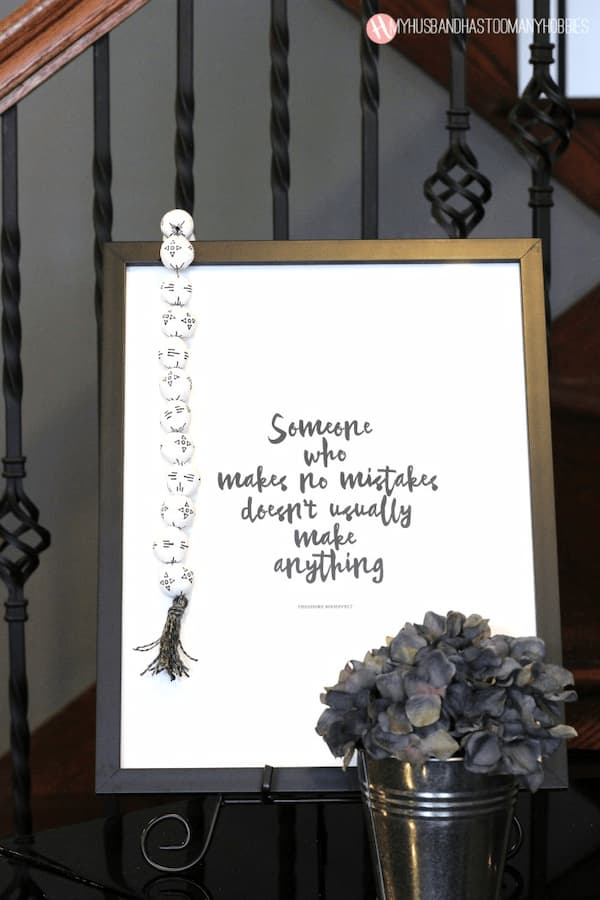 MYHUSBANDHASTOOMANYHOBBIES
Someone
who
makes no mistakes
doesn't usually
make
anything
THEODORE ROOSEVELT